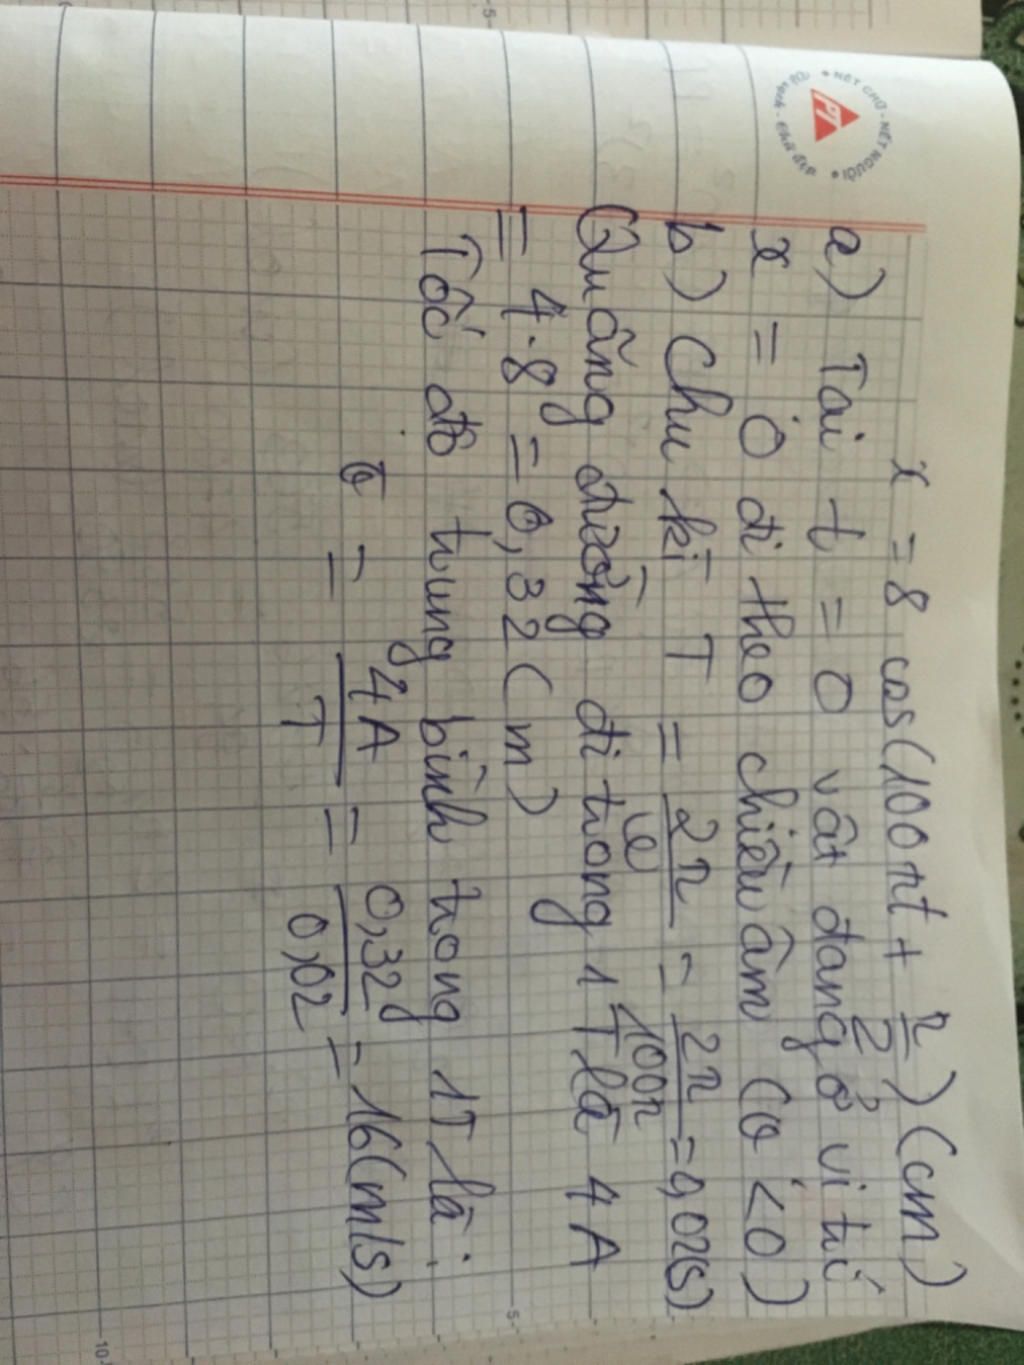 x = 8 cos(100πt + π/2) (cm)
a) Tại t = 0 vật đang ở vị trí
x = 0 đi theo chiều âm (v < 0)
b) Chu kì T = 2π/ω = 2π/100π = 0,02(s)
Quãng đường đi trong 1T là 4A
= 4.8 = 0,32 (m)
Tốc độ trung bình trong 1T là:
v = 4A/T = 0,32/0,02 = 16(m/s)
NÉT CHỮ - NẾT NGƯỜI
PT
5
5
10